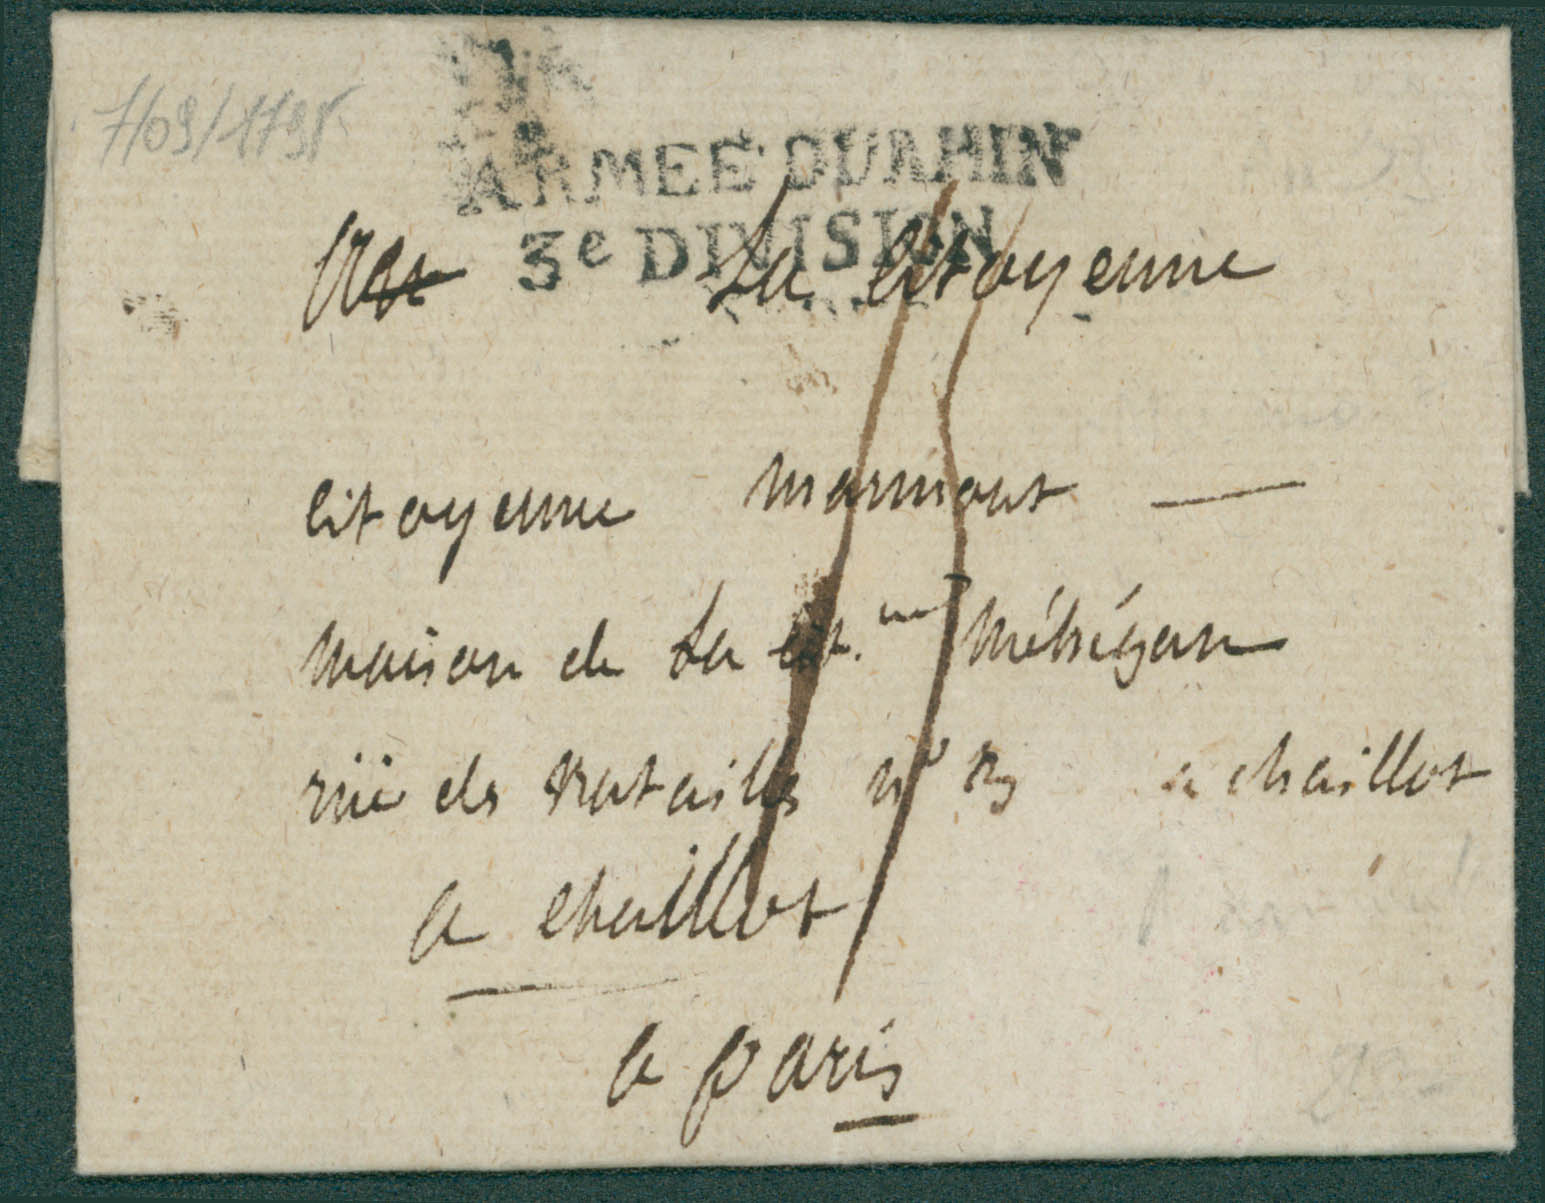 7/09/1795
ARMEE DU RHIN
3e DIVISION
La citoyenne
citoyenne marmont —
maison de La cit.
rüe des Batailles n° a chaillot
a chaillot
a paris